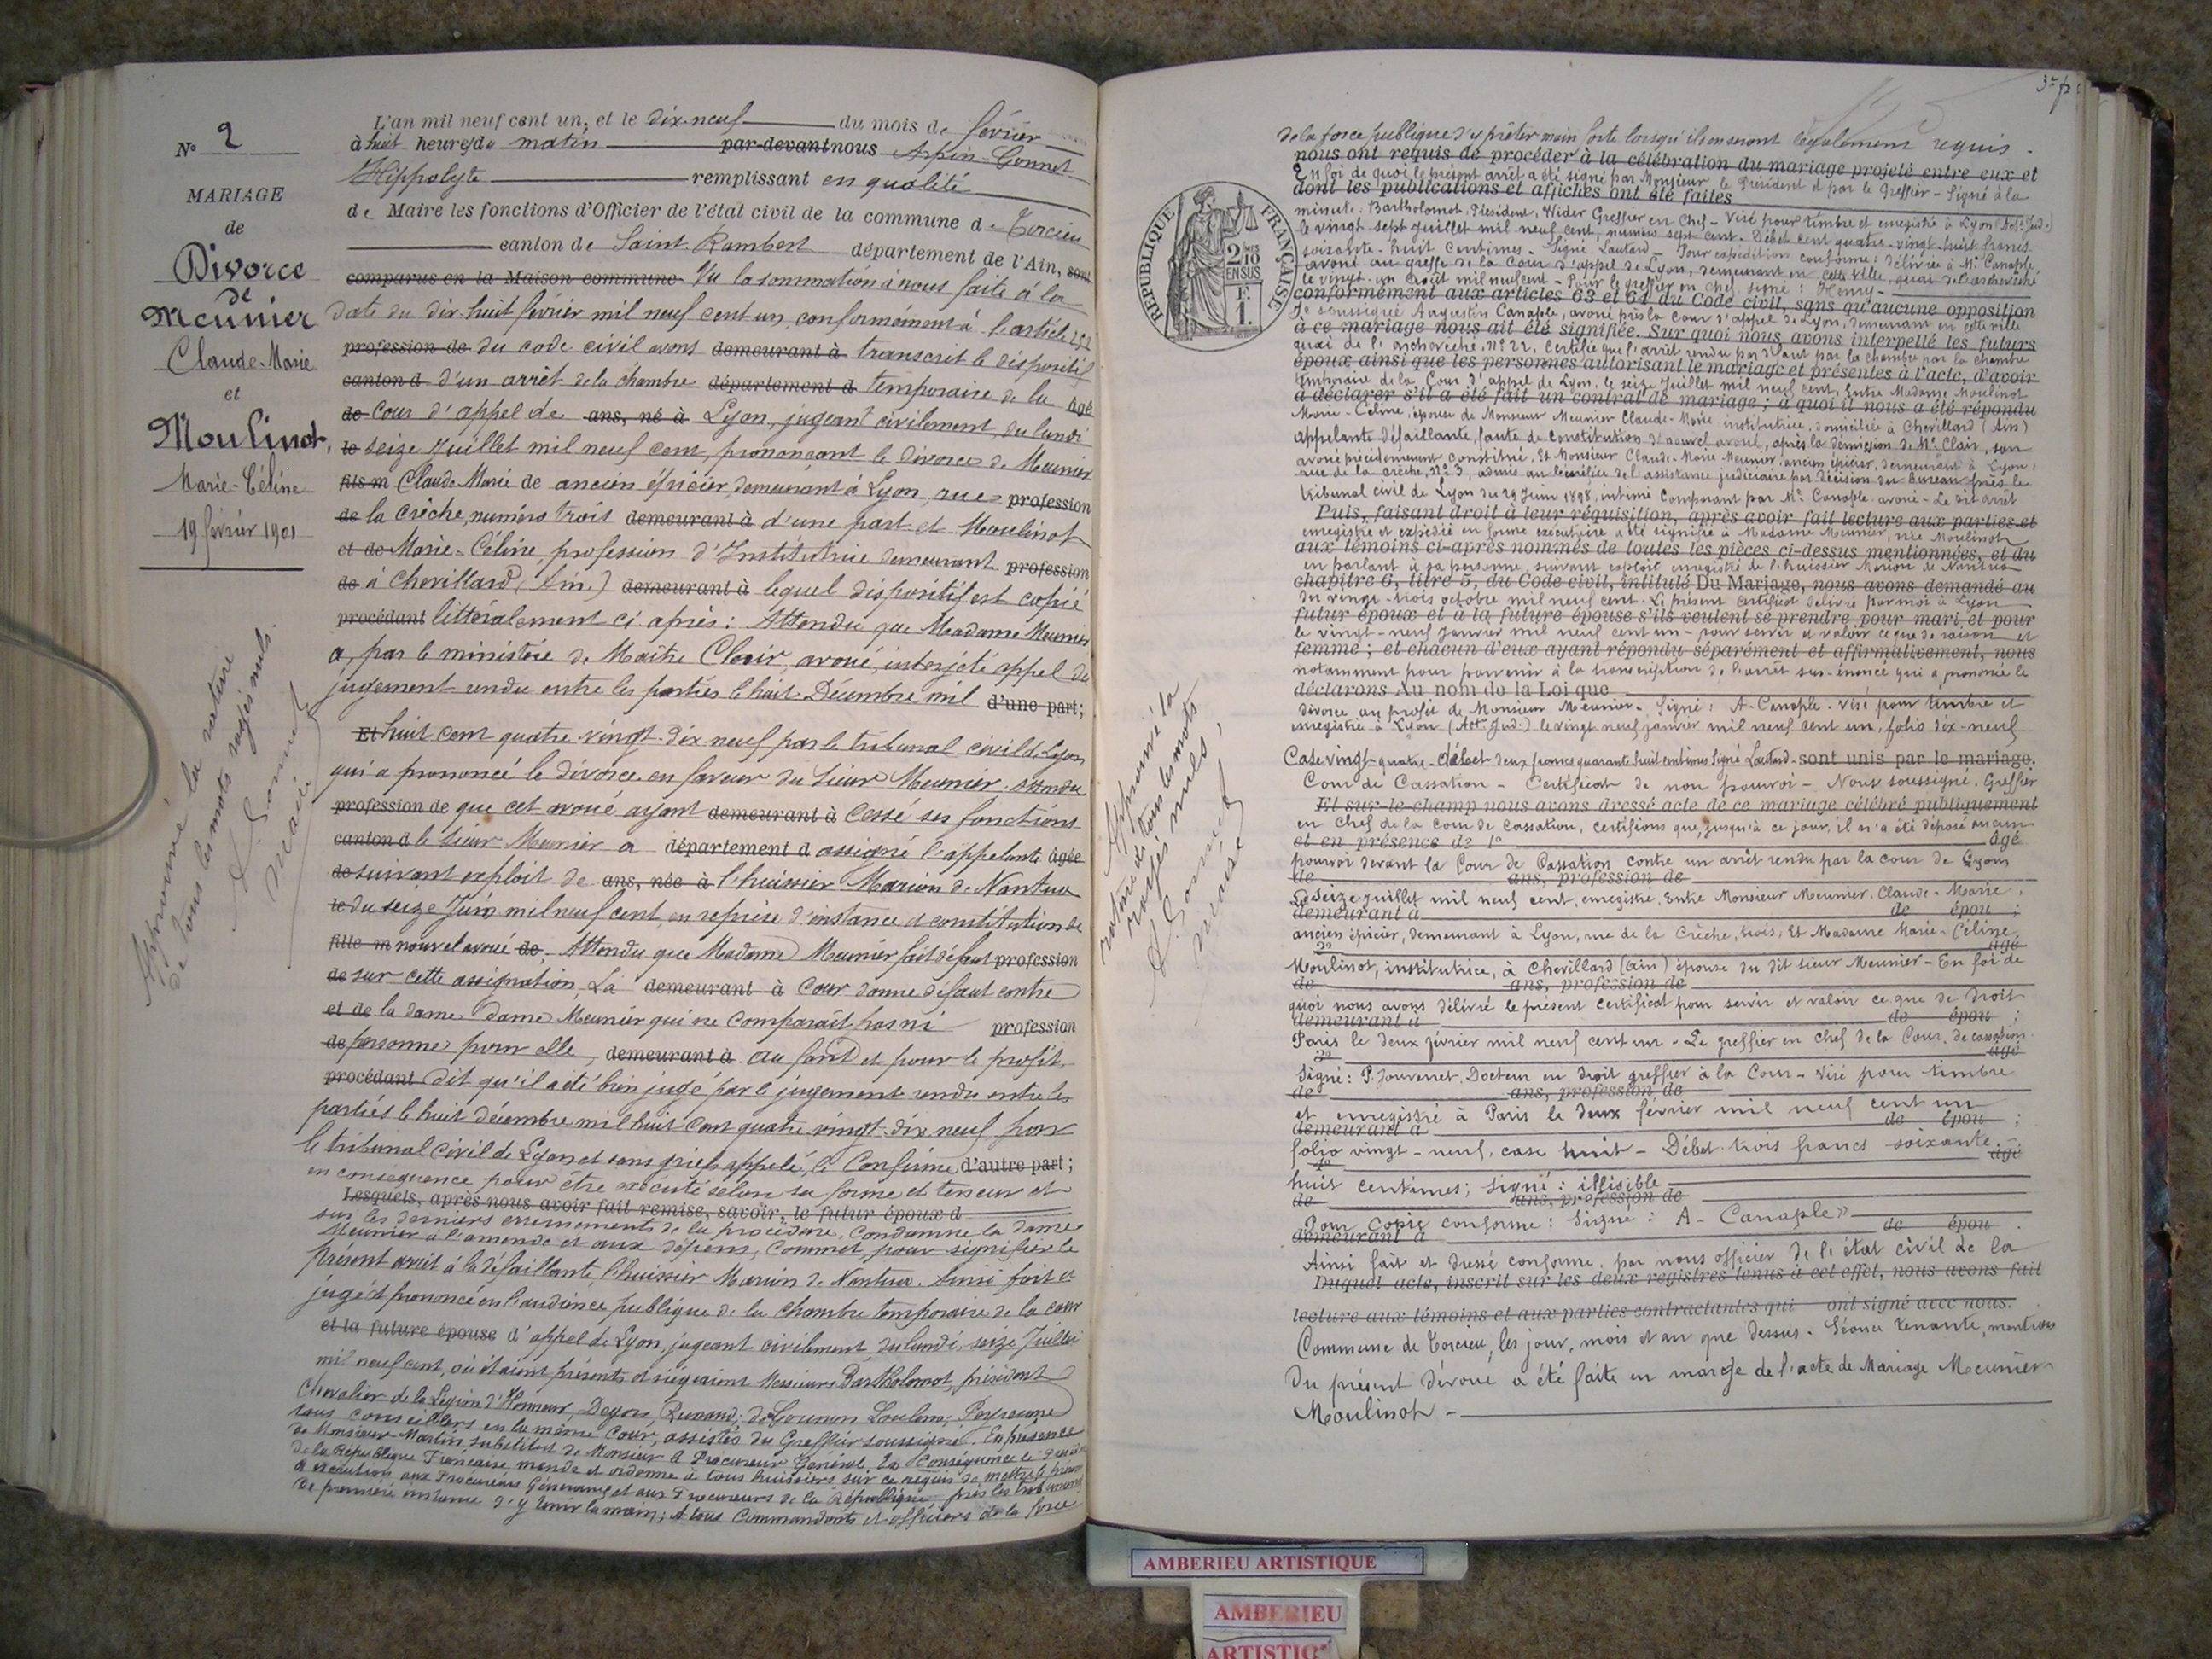 N° 2
MARIAGE
de
Divorce
de
Meunier
Claude-Marie
et
Moulinot,
Marie-Céline
19 février 1901
Approuvé la rature
de tous les mots rayés nuls.
A. Gonnet
Maire
L'an mil neuf cent un, et le dix-neuf du mois de février
à huit heures du matin par-devant nous Arpin-Gonnet
Hippolyte remplissant en qualité
de Maire les fonctions d'Officier de l'état civil de la commune de Torcieu
canton de Saint Rambert département de l'Ain, sont
comparus en la Maison commune Vu la sommation à nous faite à la
date du dix-huit février mil neuf cent un, conformément à l'article 252
profession de du code civil avons demeurant à transcrit le dispositif
canton d d'un arrêt de la chambre département d temporaire de la âgé
de Cour d'appel de ans, né à Lyon, jugeant civilement, du lundi
le seize Juillet mil neuf cent, prononçant le divorce de Meunier
fils m Claude Marie de ancien épicier, demeurant à Lyon, rue profession
de la Crèche, numéro trois demeurant à d'une part et Moulinot
et de Marie-Céline, profession d'Institutrice demeurant profession
de à Chevillard, (Ain) demeurant à lequel dispositif est copié
procédant littéralement ci après : Attendu que Madame Meunier
a, par le ministère de Maître Clair, avoué, interjeté appel du
jugement rendu entre les parties le huit Décembre mil d'une part;
Et huit cent quatre vingt-dix neuf par le tribunal civil de Lyon
qui a prononcé le divorce en faveur du Sieur Meunier. Attendu
profession de que cet avoué ayant demeurant à cessé ses fonctions
canton d le Sieur Meunier a département d assigné l'appelante âgée
de suivant exploit de ans, née à l'huissier Marion de Nantua
le du seize Juin mil neuf cent, en reprise d'instance et constitution de
fille m nouvel avoué de. Attendu que Madame Meunier fait défaut profession
de sur cette assignation, La demeurant à Cour donne défaut contre
et de la dame dame Meunier qui ne comparaît pas ni profession
de personne pour elle, demeurant à au fond et pour le profit,
procédant dit qu'il a été bien jugé par le jugement rendu entre les
parties le huit décembre mil huit cent quatre vingt-dix neuf par
le tribunal civil de Lyon et sans griefs appelé, le Confirme d'autre part;
en conséquence pour être exécuté selon sa forme et teneur et
Lesquels, après nous avoir fait remise, savoir, le futur époux d
sur les derniers errements de la procédure, Condamne la dame
Meunier à l'amende et aux dépens, Commet, pour signifier le
présent arrêt à la défaillante, l'huissier Marion de Nantua. Ainsi fait et
jugé et prononcé en l'audience publique de la chambre temporaire de la cour
et la future épouse d'appel de Lyon, jugeant civilement du lundi, seize Juillet
mil neuf cent, où étaient présents et siégeaient Messieurs Bartholomot, président
Chevalier de la Légion d'Honneur,
tous conseillers en la même Cour, assistés du Greffier soussigné. En présence
de Monsieur Martin, substitut de Monsieur le Procureur Général. En Conséquence le
de la République Française, mande et ordonne à tous huissiers sur ce requis de mettre le présent
à exécution, aux Procureurs Généraux et aux Procureurs de la République, près les tribunaux
de première instance d'y tenir la main; A tous Commandants et officiers de la force
RÉPUBLIQUE FRANÇAISE
2 MES
10
EN SUS
F.
1.
Approuvé la
rature de tous les mots
rayés nuls,
A. Gonnet
maire
de la force publique d'y prêter main forte lorsqu'ils en seront légalement requis.
nous ont requis de procéder à la célébration du mariage projeté entre eux et
En foi de quoi le présent arrêt a été signé par Monsieur le Président et par le Greffier - Signé à la
dont les publications et affiches ont été faites
minute: Bartholomot, Président, Wider Greffier en chef - Visé pour timbre et enregistré à Lyon (Act. Jud.)
le vingt sept Juillet mil neuf cent, numéro sept cent. Débet cent quatre-vingt-huit francs
soixante-huit centimes - Signé Lautard - Pour expédition conforme: délivrée à Mc Canaple,
avoué au greffe de la Cour d'appel de Lyon, demeurant en cette ville, quai de l'archevêché
le vingt-un Août mil neuf cent - Pour le greffier en chef, signé : Henry -
conformément aux articles 63 et 64 du Code civil, sans qu'aucune opposition
Je soussigné Augustin Canaple, avoué près la Cour d'appel de Lyon, demeurant en cette ville
à ce mariage nous ait été signifiée. Sur quoi nous avons interpellé les futurs
quai de l'archevêché, N° 22, Certifie que l'arrêt rendu par défaut par la chambre par la chambre
époux ainsi que les personnes autorisant le mariage et présentes à l'acte, d'avoir
temporaire de la Cour d'appel de Lyon, le seize Juillet mil neuf cent, Entre Madame Moulinot
à déclarer s'il a été fait un contrat de mariage; à quoi il nous a été répondu
Marie-Céline, épouse de Monsieur Meunier Claude-Marie institutrice, domiciliée à Chevillard (Ain)
appelante défaillante, faute de Constitution de nouvel avoué, après la démission de Mc Clair, son
avoué précédemment constitué, Et Monsieur Claude-Marie Meunier, ancien épicier, demeurant à Lyon,
rue de la Crèche, N° 3, admis au bénéfice de l'assistance judiciaire par décision du bureau près le
tribunal civil de Lyon du 29 Juin 1898, intimé comparant par Mc Canaple avoué - Le dit arrêt
Puis, faisant droit à leur réquisition, après avoir fait lecture aux parties et
enregistré et expédié en forme exécutoire a été signifié à Madame Meunier, née Moulinot
aux témoins ci-après nommés de toutes les pièces ci-dessus mentionnées, et du
en parlant à sa personne, suivant exploit enregistré de l'huissier Marion de Nantua
chapitre 6, titre 5, du Code civil, intitulé Du Mariage, nous avons demandé au
du vingt-trois octobre mil neuf cent. Le présent certificat délivré par moi à Lyon
futur époux et à la future épouse s'ils veulent se prendre pour mari et pour
le vingt-neuf Janvier mil neuf cent un - pour servir et valoir ce que de raison et
femme; et chacun d'eux ayant répondu séparément et affirmativement, nous
notamment pour parvenir à la transcription de l'arrêt sus-énoncé qui a prononcé le
déclarons Au nom de la Loi que
divorce au profit de Monsieur Meunier. Signé : A. Canaple. Visé pour timbre et
enregistré à Lyon (Act. Jud.) le vingt neuf janvier mil neuf cent un, folio dix-neuf
Case vingt-quatre - débet deux francs quarante huit centimes Signé Lautard - sont unis par le mariage.
Cour de Cassation - Certificat de non pourvoi - Nous soussigné, Greffier
Et sur-le-champ nous avons dressé acte de ce mariage célébré publiquement
en Chef de la Cour de Cassation, certifions que, jusqu'à ce jour, il n'a été déposé aucun
et en présence de 1° âgé
pourvoi devant la Cour de Cassation contre un arrêt rendu par la cour de Lyon
de ans, profession de
Le seize juillet mil neuf cent, enregistré, Entre Monsieur Meunier, Claude-Marie,
demeurant à de épou ;
ancien épicier, demeurant à Lyon, rue de la Crèche, trois, Et Madame Marie-Céline
2° âgé
Moulinot, institutrice, à Chevillard (Ain) épouse du dit sieur Meunier - En foi de
de ans, profession de
quoi nous avons délivré le présent Certificat pour servir et valoir ce que de droit
demeurant à de épou ;
Paris le deux février mil neuf cent un - Le greffier en chef de la Cour de cassation
3° âgé
Signé: P. Jouvenet, Docteur en droit greffier à la Cour - Visé pour timbre
de ans, profession de
et enregistré à Paris le deux février mil neuf cent un
demeurant à de épou ;
folio vingt-neuf, case huit - Débet trois francs soixante
4° âgé
huit centimes; Signé : illisible
de ans, profession de
Pour copie conforme: Signé : A. Canaple"
demeurant à de épou .
Ainsi fait et dressé conforme, par nous officier de l'état civil de la
Duquel acte, inscrit sur les deux registres tenus à cet effet, nous avons fait
lecture aux témoins et aux parties contractantes qui ont signé avec nous.
Commune de Torcieu, les jour, mois et an que dessus. Séance tenante, mention
du présent divorce a été faite en marge de l'acte de Mariage Meunier
Moulinot -
AMBERIEU ARTISTIQUE
AMBERIEU
ARTISTIQ